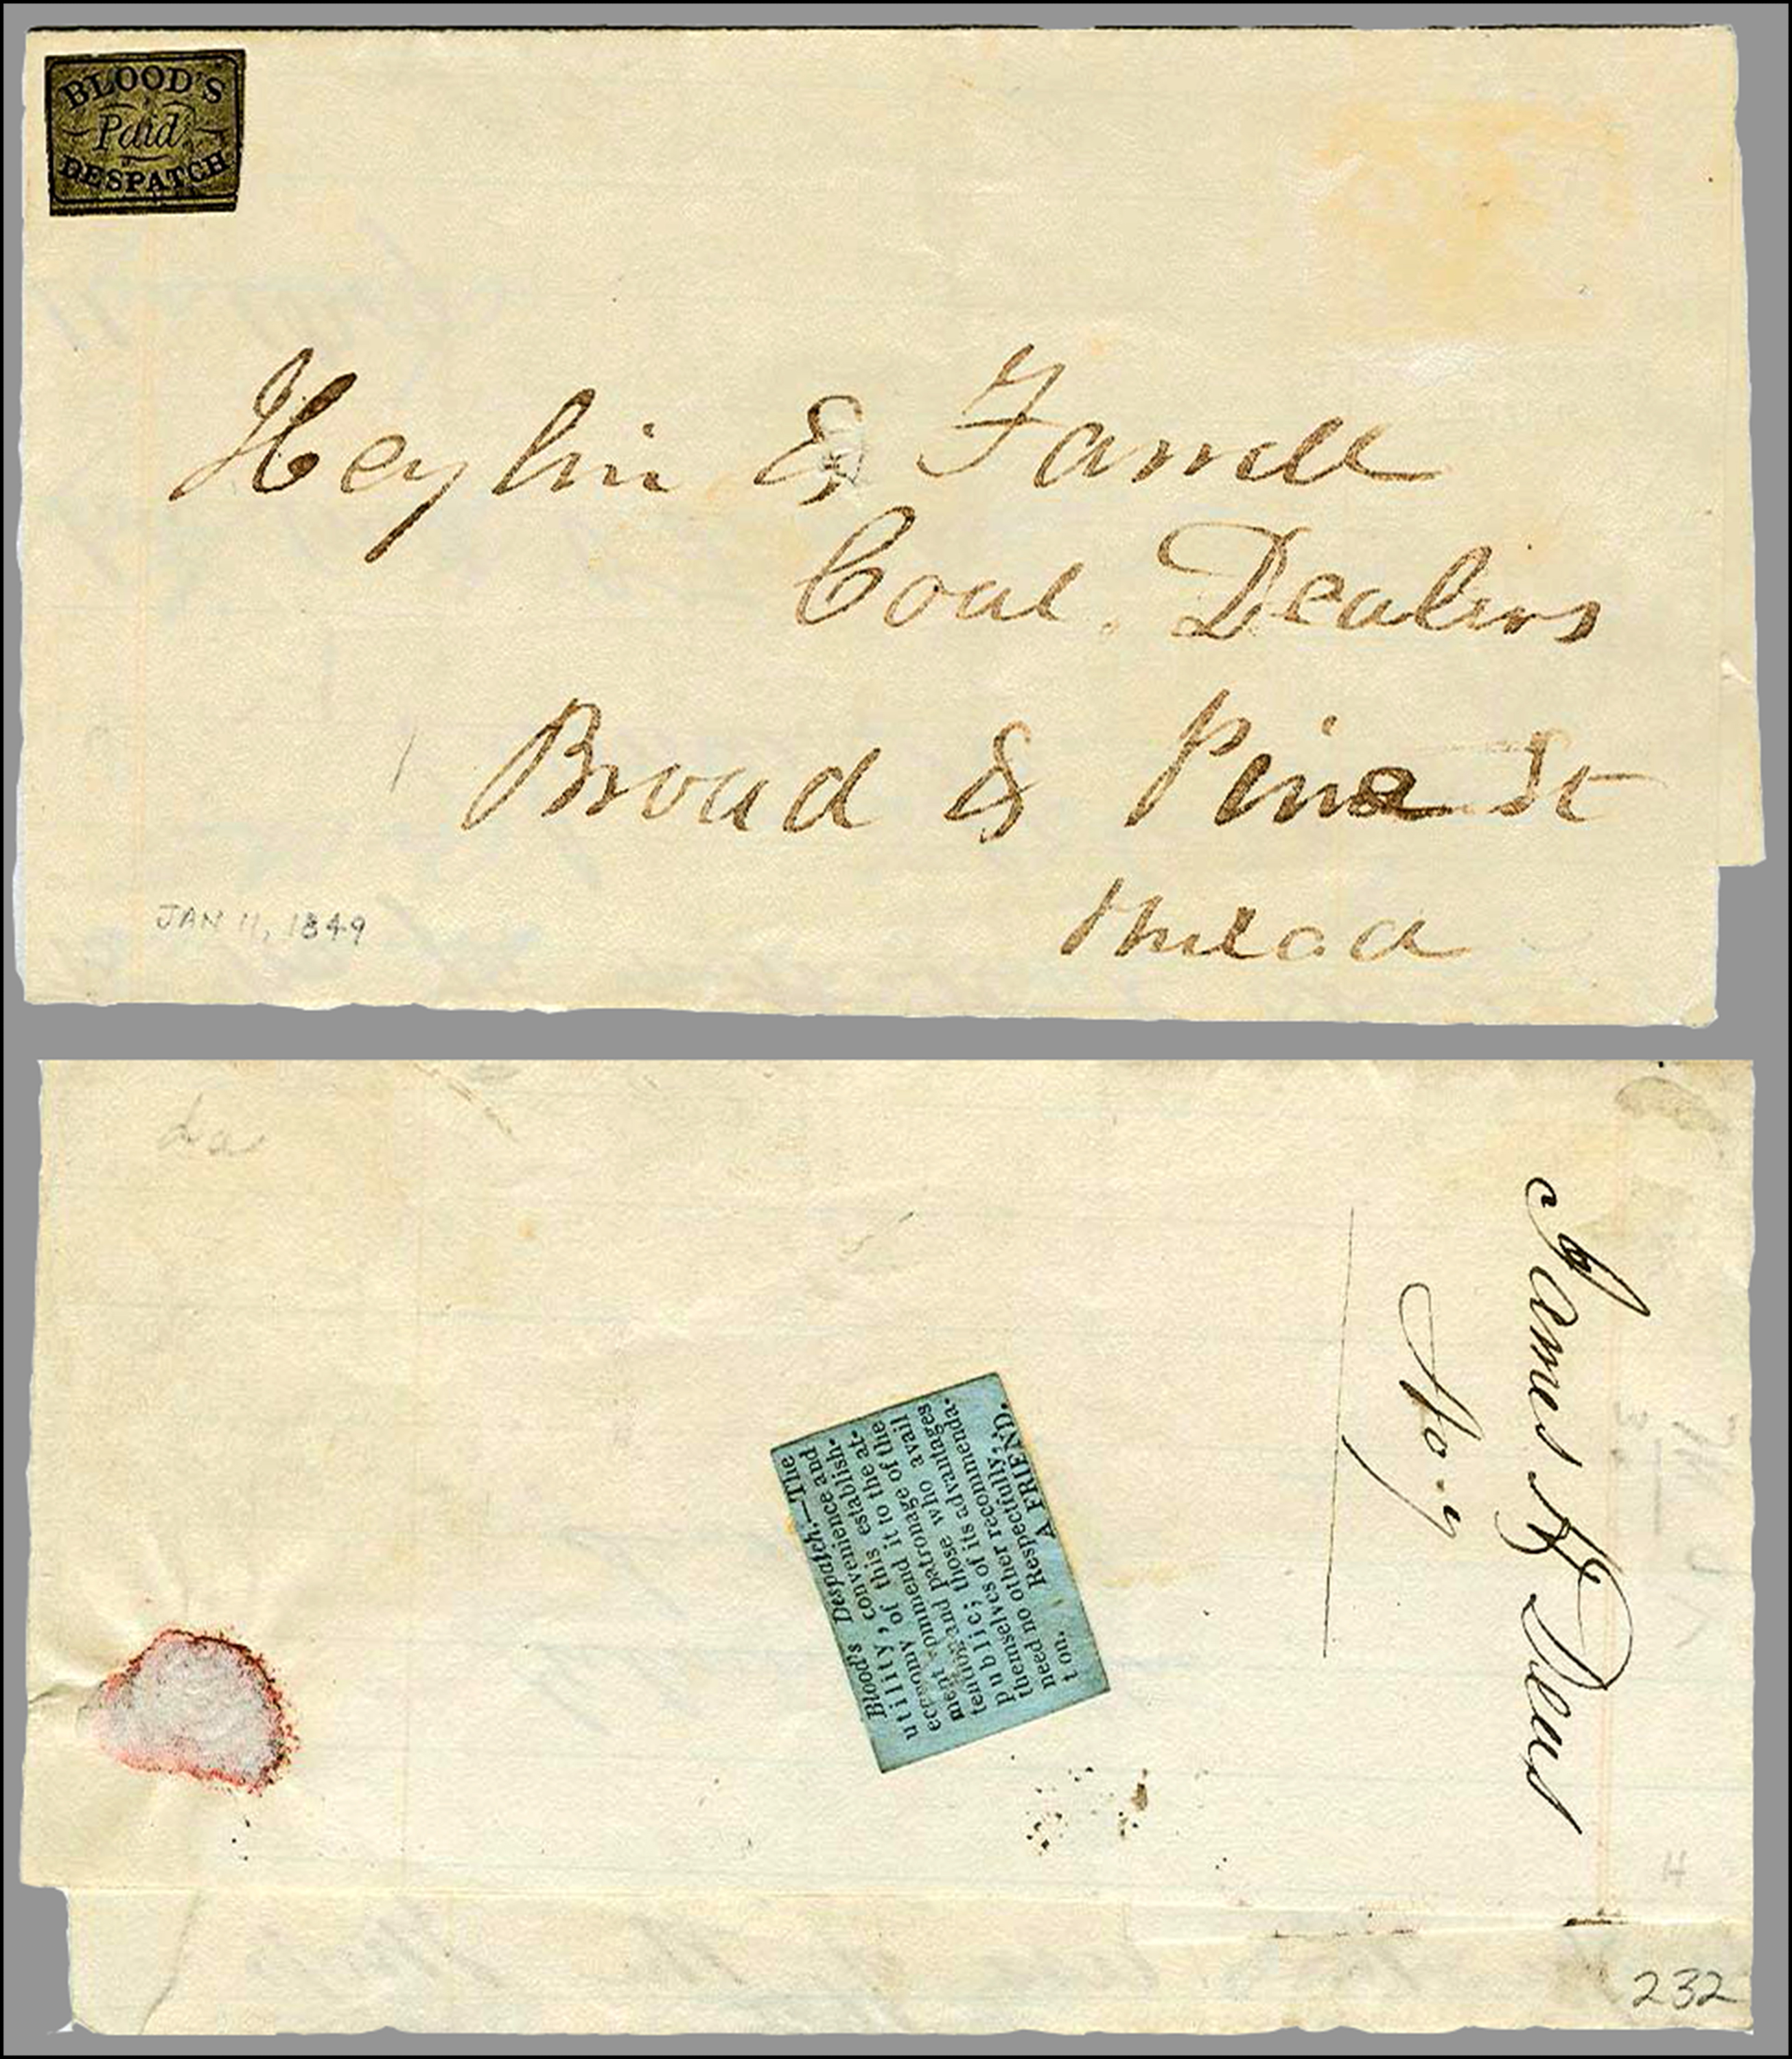 BLOOD'S
Paid
DESPATCH
Heylin & Farrell
Coal Dealers
Broad & Pine St
Philad a
JAN 11, 1849
Blood's Despatch.—The
utility, convenience and
economy of this establish-
ment commend it to the at-
tention and patronage of the
public; those who avail
themselves of its advantages
need no other recommenda-
t on. Respectfully,
A FRIEND.
James
No. 9
H
232